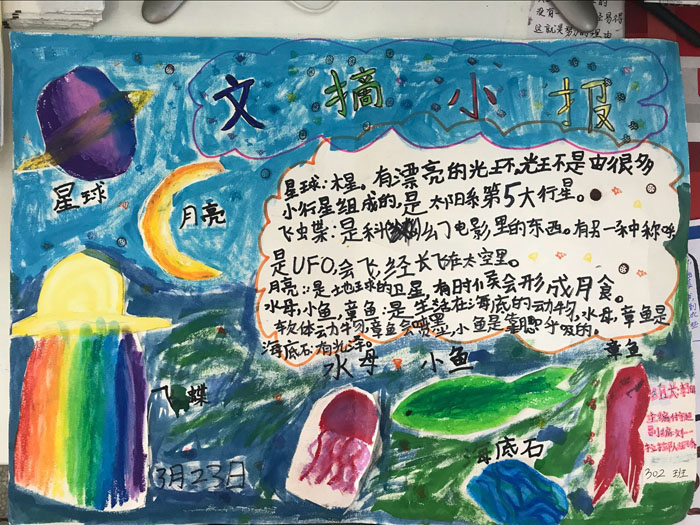 文摘小报
星球
月亮
星球:木星。有漂亮的光环,光环不是由很多
小行星组成的,是太阳系第5大行星。
飞虫蝶:是科幻电影里的东西。有另一种称呼
是UFO,会飞,经长飞在太空里。
月亮:是地球的卫星,有时候会形成月食。
水母,小鱼,章鱼:是生活在海底的动物,水母,章鱼是
软体动物,章鱼会喷墨,小鱼是靠腮呼吸的。
海底石:有光泽。
水母
小鱼
章鱼
飞蝶
底石
3月23日
主编
副编
302班